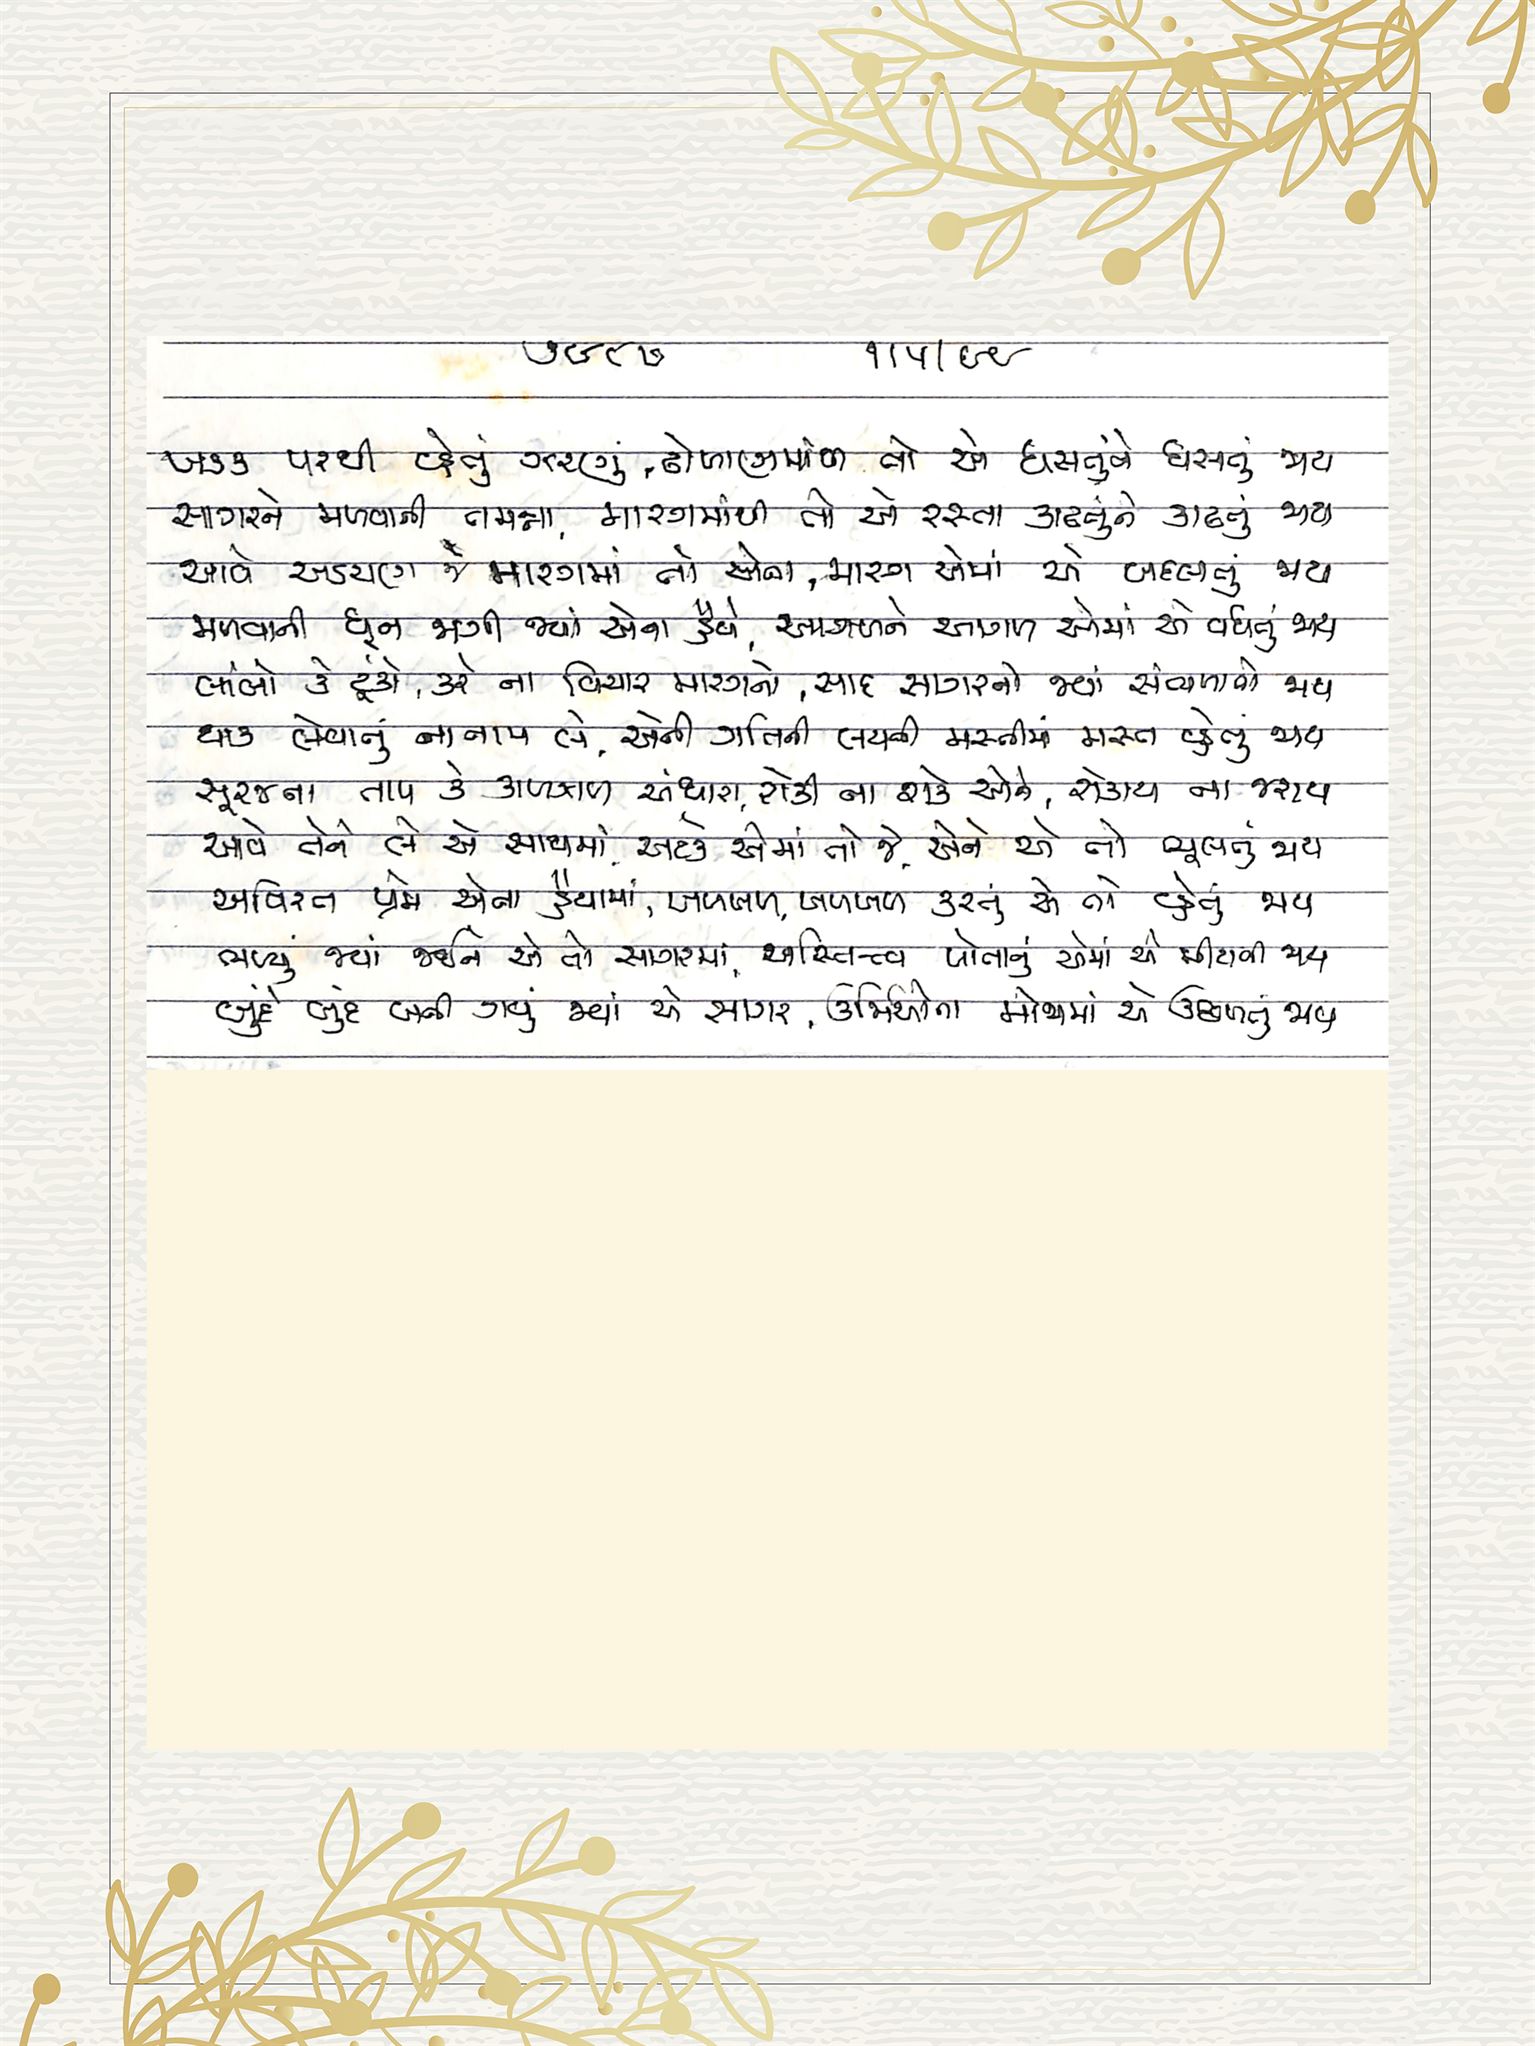 ૭૯૮૭ ૧/૫/૯૯
ખડક પરથી વ્હેતું ઝરણું, ઢોળાણમાંથી તો એ ધસતુંને ધસતું જાય
સાગરને મળવાની તમન્ના, મારગમાંથી તો એ રસ્તા કાઢતુંને કાઢતું જાય
આવે અડચણ જે મારગમાં તો એના, મારગ એમાં એ બદલતું જાય
મળવાની ધૂન જાગી જ્યાં એના હૈયે, આગળને આગળ એમાં એ વધતું જાય
લાંબો કે ટૂંકો, કરે ના વિચાર મારગનો, સાદ સાગરનો જ્યાં સંભળાતો જાય
થાક લેવાનું ના નામ લે, એની ગતિની લયની મસ્તીમાં મસ્ત વ્હેતું જાય
સૂરજના તાપ કે કાળઝાળ અંધારા, રોકી ના શકે એને, રોકાય ના જરાય
આવે તેને લે એ સાથમાં, અટકે એમાં તો જે, એને એ તો ભૂલતું જાય
અવિરત પ્રેમ એના હૈયામાં, ખળખળ, ખળખળ કરતું એ તો વ્હેતું જાય
ભળ્યું જ્યાં જઈને એ તો સાગરમાં, અસ્તિત્ત્વ પોતાનું એમાં એ મીટાવી જાય
બુંદે બુંદ બની ગયું જ્યાં એ સાગર, ઉર્મિઓના મોજામાં એ ઉછળતું જાય